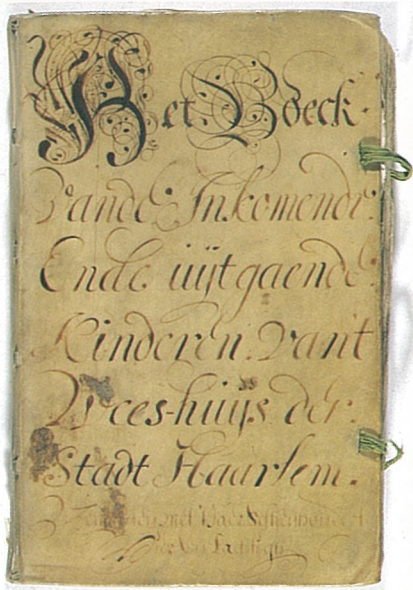 Het Boeck
vande Inkomende
Ende uijtgaende
Kinderen vant
Wees-huijs der
Stadt Haarlem.
met